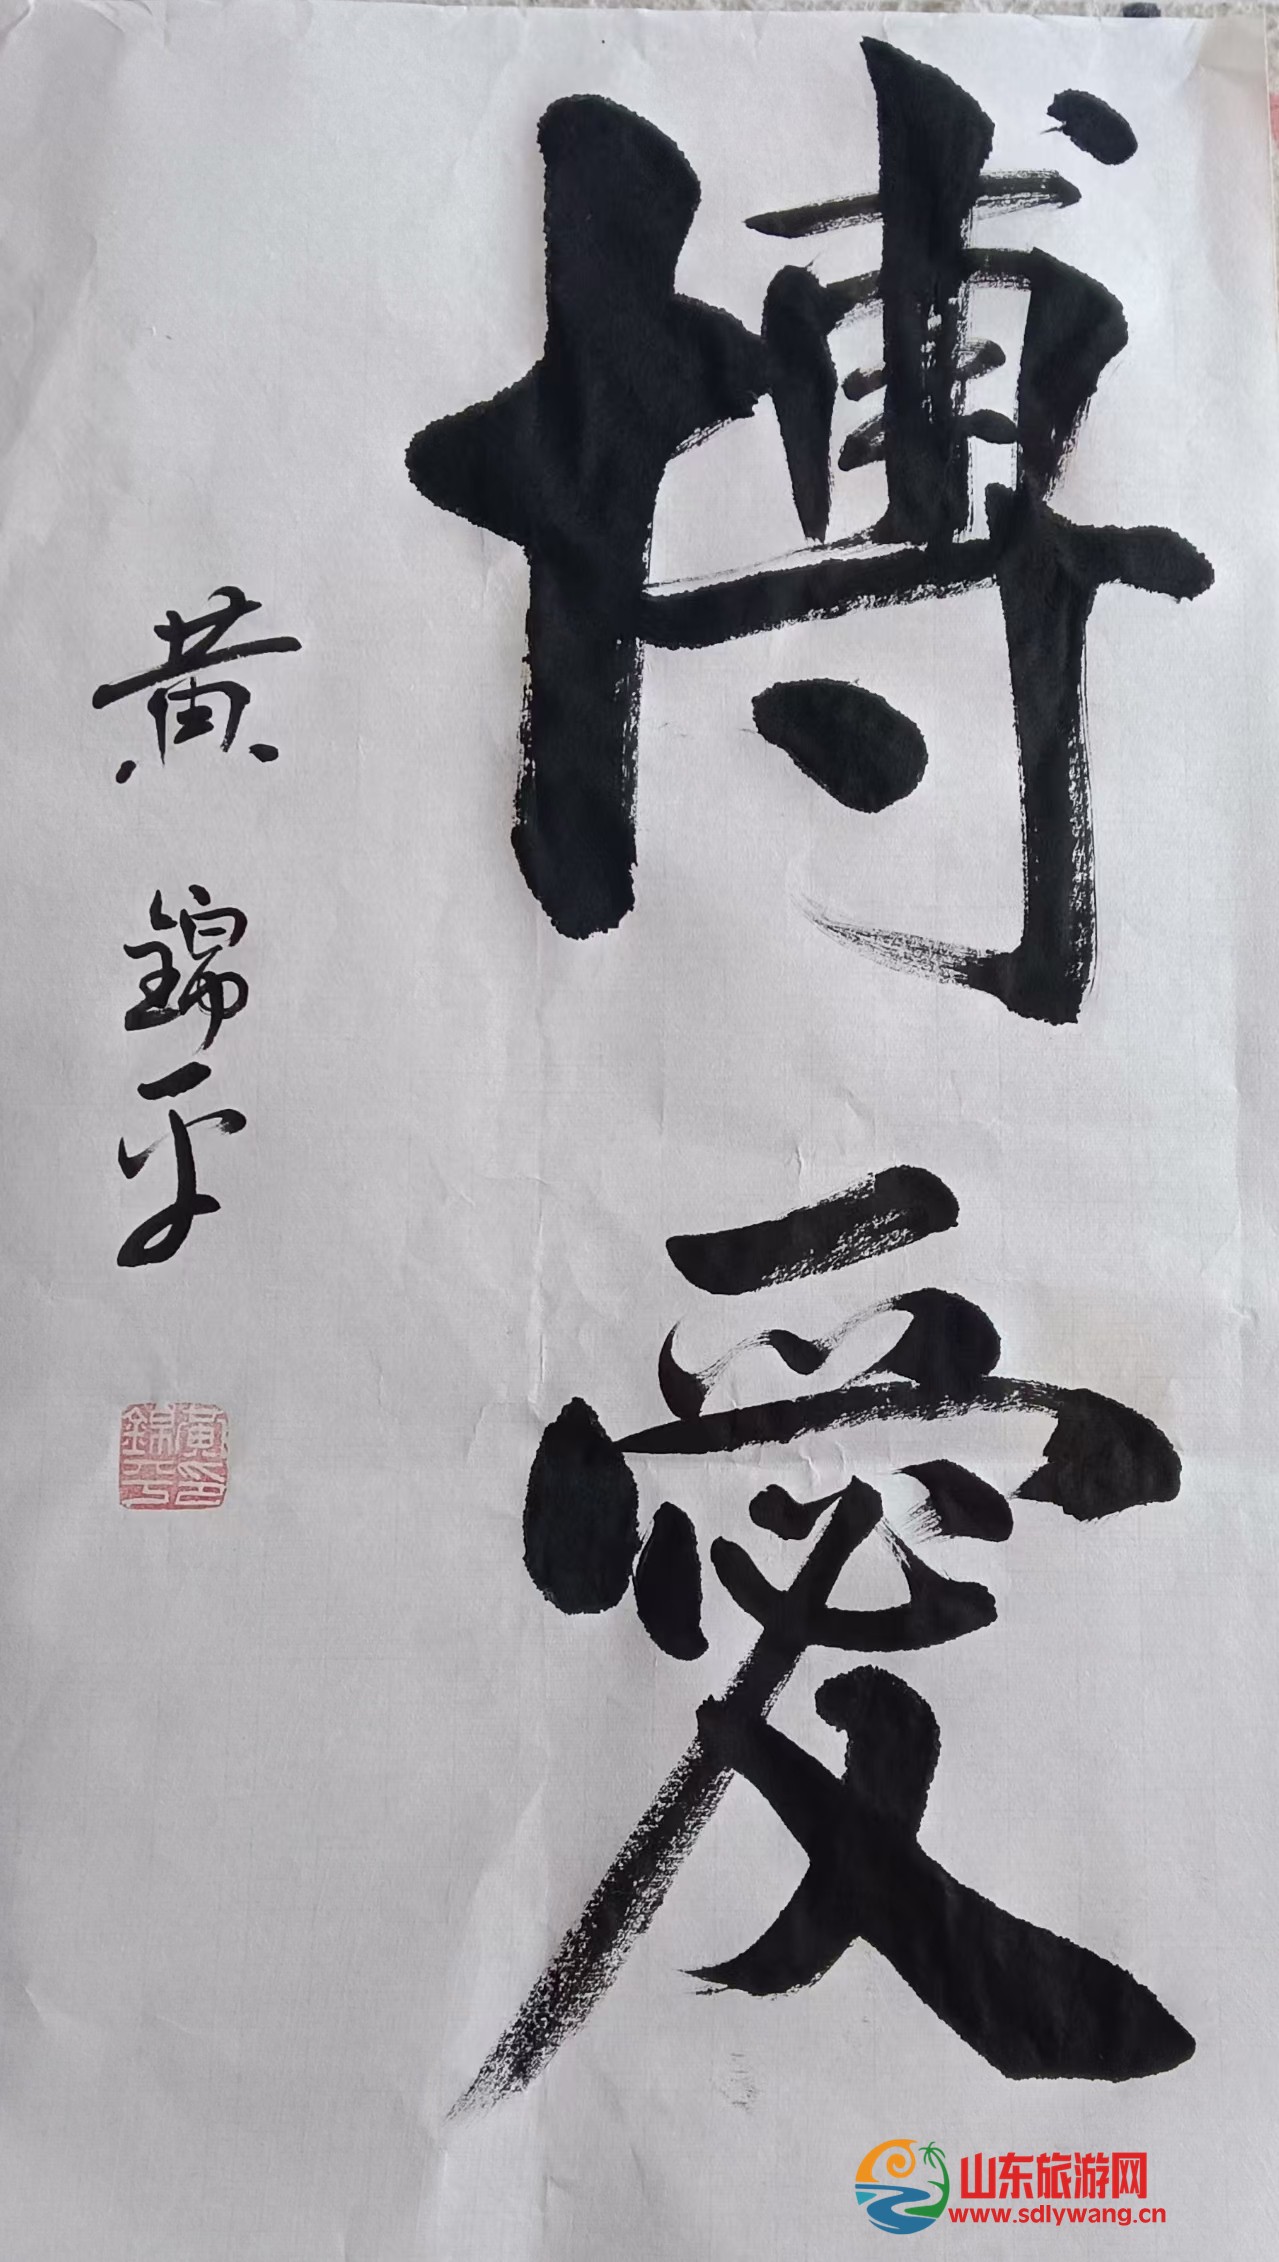 博愛
黄錦平
黃印錦平
山东旅游网
www.sdlywang.cn